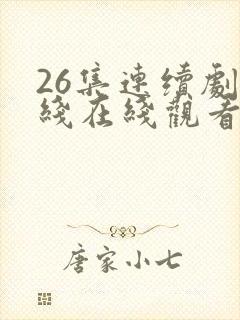 26集連續劇
綫在綫觀看
唐家小七